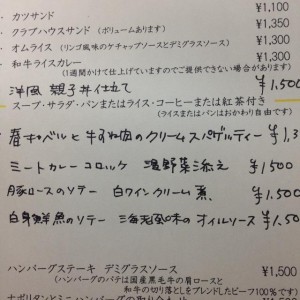 ・ カツサンド ¥1,100
・ クラブハウスサンド (ボリュームあります) ¥1,350
・ オムライス (リンゴ風味のケチャップソースとデミグラスソース) ¥1,300
・ 和牛ライスカレー ¥1,300
(1週間かけて仕上げていますのでご提供できない場合があります)
洋風 親子丼仕立て ¥1,500
スープ・サラダ・パンまたはライス・コーヒーまたは紅茶付き
(ライスまたはパンはおかわり自由です)
春キャベツと牛すね肉のクリームスパゲッティー ¥1,3
ミートカレーコロッケ 温野菜添え ¥1500
豚ロースのソテー 白ワインクリーム煮 ¥1,50
白身鮮魚のソテー 海老風味のオイルソース ¥1,50
ハンバーグステーキ デミグラスソース ¥1,500
(ハンバーグのパテは国産黒毛牛の肩ロースと
和牛の切り落としをブレンドしたビーフ100%です)